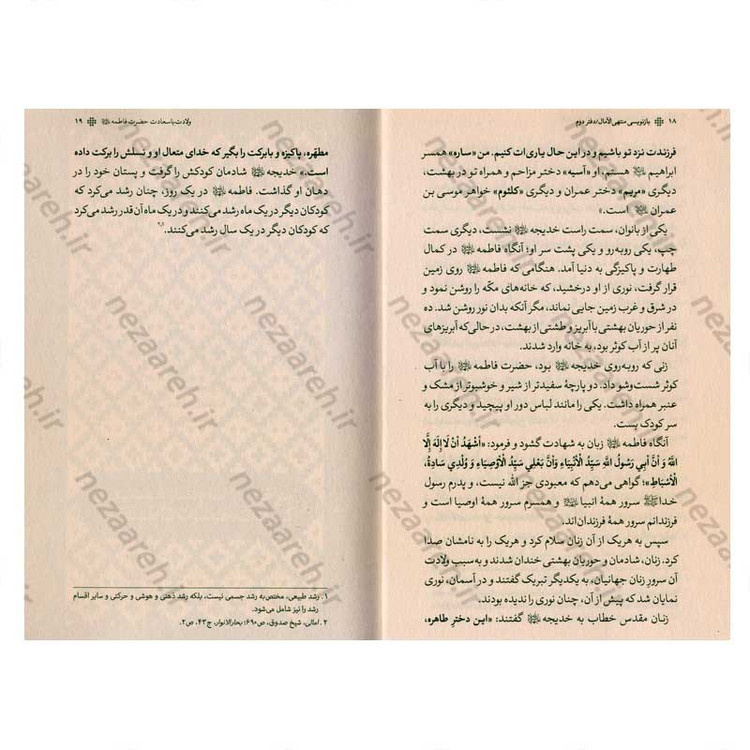 ۱۸ بازنویسی منتهی‌الآمال/دفتر دوم
فرزندت نزد تو باشیم و در این حال یاری‌ات کنیم. من «ساره» همسر
ابراهیم هستم. او «آسیه» دختر مزاحم و همراه تو در بهشت،
دیگری «مریم» دختر عمران و دیگری «کلثوم» خواهر موسی بن
عمران است.»
یکی از بانوان، سمت راست خدیجه نشست، دیگری سمت
چپ، یکی روبه‌رو و یکی پشت سر او؛ آنگاه فاطمه در کمال
طهارت و پاکیزگی به دنیا آمد. هنگامی که فاطمه روی زمین
قرار گرفت، نوری از او درخشید، که خانه‌های مکّه را روشن نمود و
در شرق و غرب زمین جایی نماند، مگر آنکه بدان نور روشن شد. ده
نفر از حوریان بهشتی با آبریز و طشتی از بهشت، در حالی که آبریزهای
آنان پر از آب کوثر بود، به خانه وارد شدند.
زنی که روبه‌روی خدیجه بود، حضرت فاطمه را با آب
کوثر شست‌وشو داد. دو پارچهٔ سفیدتر از شیر و خوشبوتر از مشک و
عنبر همراه داشت. یکی را مانند لباس دور او پیچید و دیگری را به
سر کودک بست.
آنگاه فاطمه زبان به شهادت گشود و فرمود: «أشهَدُ أنْ لَا إلهَ إلَّا
اللهُ وَ أنَّ أبي رَسُولُ اللهِ سَيِّدُ الْأنْبِيَاءِ وَأنَّ بَعْلِي سَيِّدُ الْأوْصِيَاءِ وَ وُلْدِي سَادَةُ،
الْأسْبَاطِ»؛ گواهی می‌دهم که معبودی جز الله نیست، و پدرم رسول
خدا سرور همهٔ انبیا و همسرم سرور همهٔ اوصیا است و
فرزندانم سرور همهٔ فرزندان‌اند.
سپس به هریک از آن زنان سلام کرد و هریک را به نامشان صدا
کرد. زنان، شادمان و حوریان بهشتی خندان شدند و به‌سبب ولادت
آن سرورِ زنان جهانیان، به یکدیگر تبریک گفتند و در آسمان، نوری
نمایان شد که پیش از آن، چنان نوری را ندیده بودند.
زنان مقدس خطاب به خدیجه گفتند: «این دخترِ طاهره،
ولادت باسعادت حضرت فاطمه ۱۹
مطهّره، پاکیزه و بابرکت را بگیر که خدای متعال او و نسلش را برکت داده
است.» خدیجه شادمان کودکش را گرفت و پستان خود را در
دهان او گذاشت. فاطمه در یک روز، چنان رشد می‌کرد که
کودکان دیگر در یک ماه رشد می‌کنند و در یک ماه آن قدر رشد می‌کرد
که کودکان دیگر در یک سال رشد می‌کنند.
۱. رشد طبیعی، مختص به رشد جسمی نیست، بلکه رشد ذهنی و هوشی و حرکتی و سایر اقسام
رشد را نیز شامل می‌شود.
۲. امالی، شیخ صدوق، ص۶۹۰؛ بحارالانوار، ج۴۳، ص۲.
nezaareh.ir